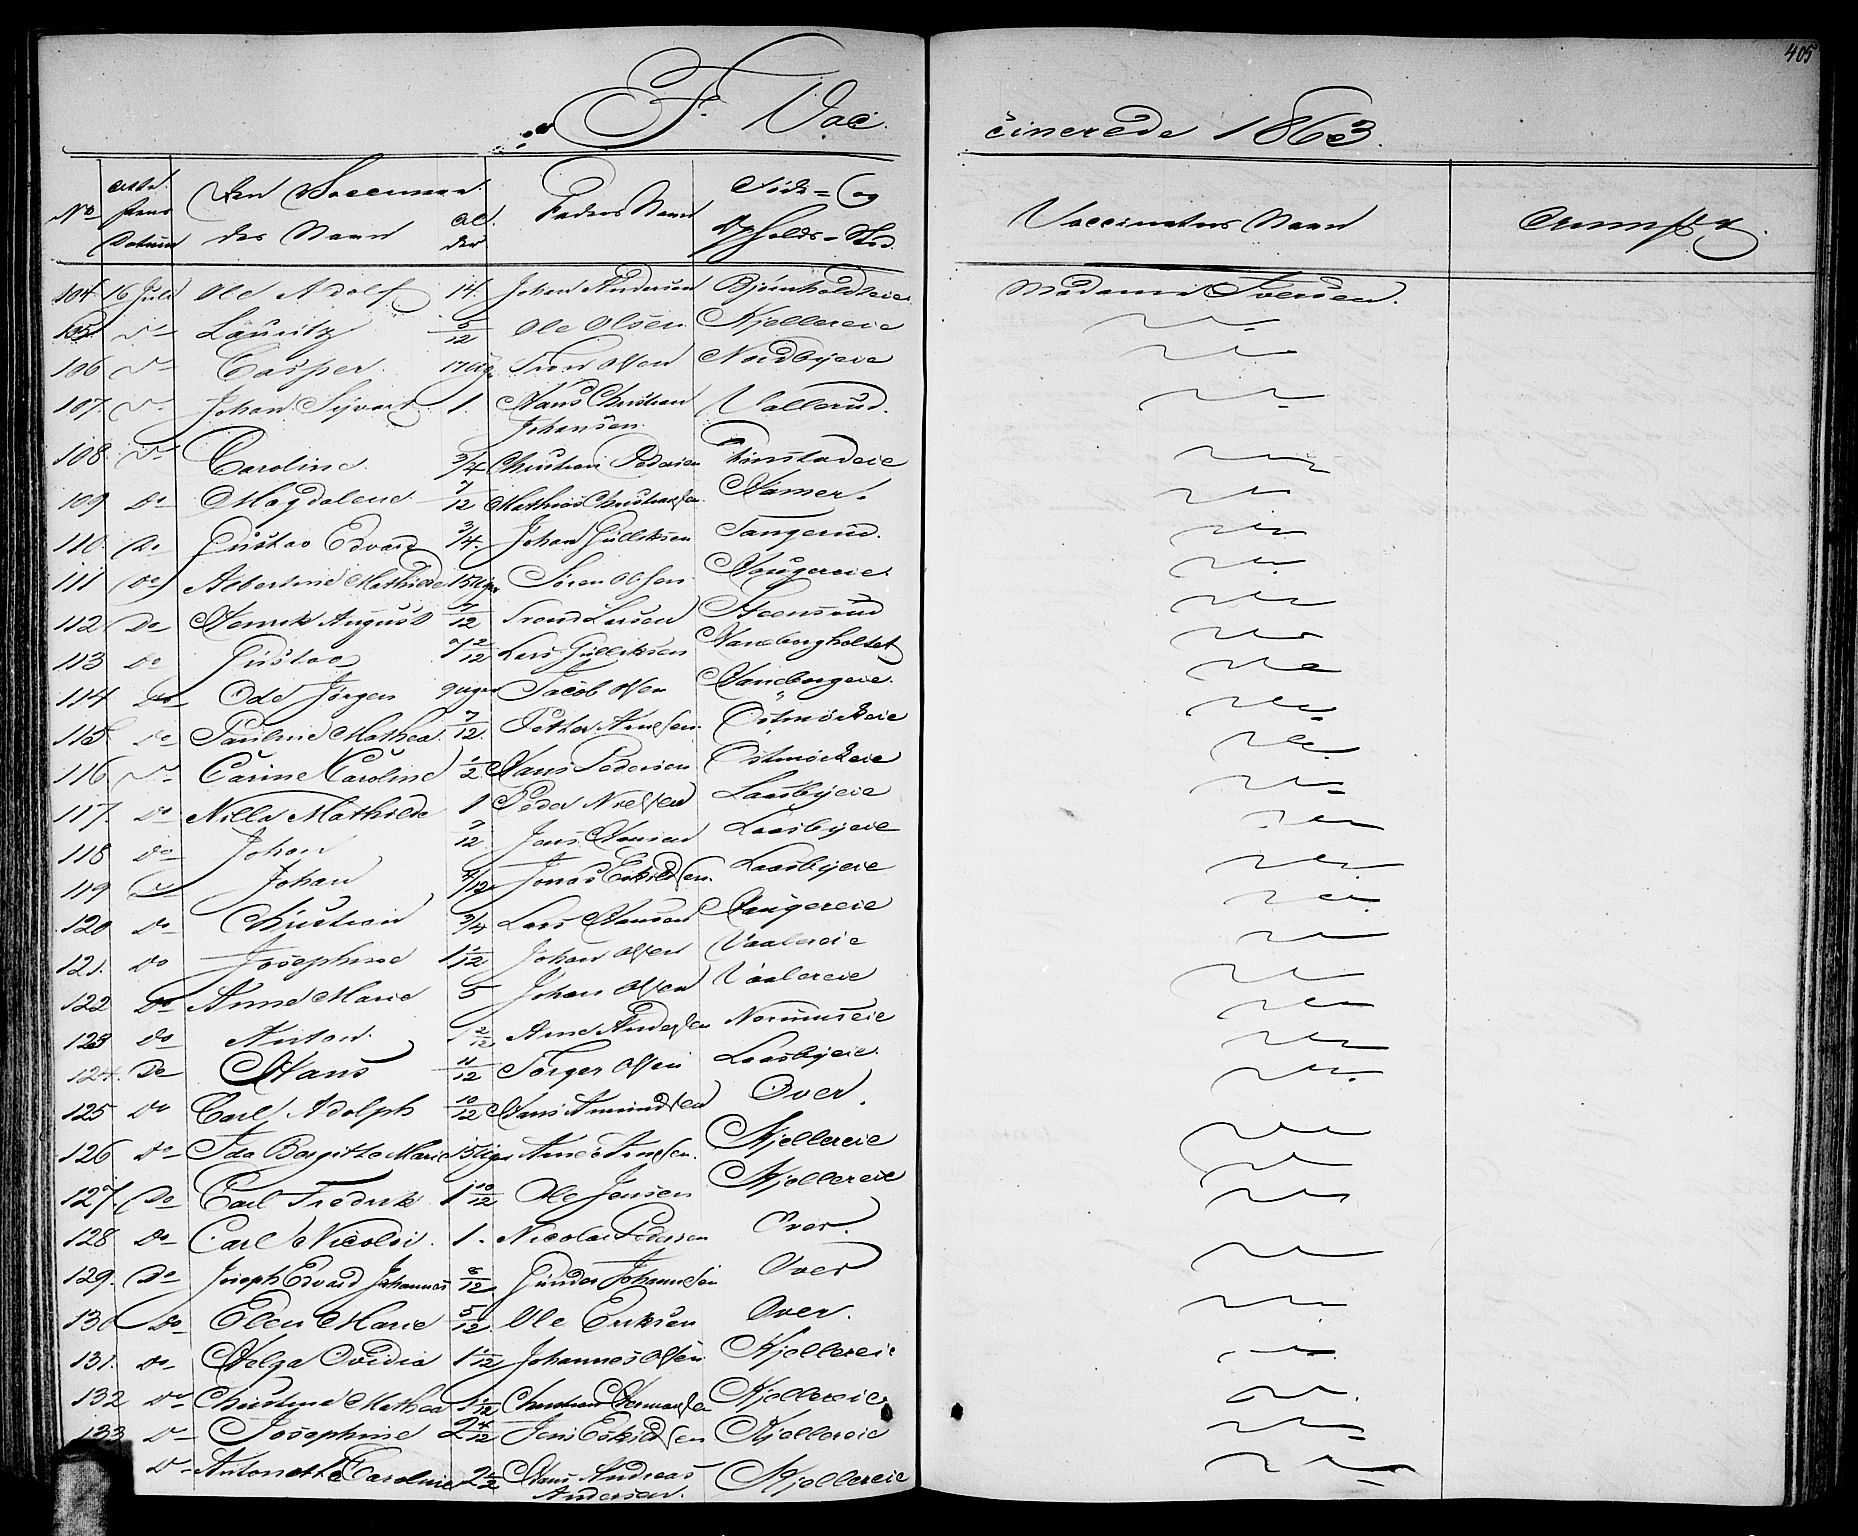 405
F. Vac
cinerede 1863.
No Attestens Datum Den Vaccineredes Navn Alder Faders Navn Føde- og Opholds-Sted. Vaccinateurs Navn Anmærk.
104 16 Juli Ole Adolf 14. Johan Andersen Bjørnholdteie Madame Iversen.
105. Do Lauritz 5/12 Ole Olsen Kjellereie
106 Do Casper. 17 Uger Trond Olsen Nordbyeie
107. Do Johan Sijvart 1. Hans Christian Johansen Vallerud.
108 Do Caroline 3/4 Christian Pedersen Finstadeie
109 Do Magdalene 7/12 Mathias Christiansen Hamer.
110. Do Gustav Edvard 3/4. Johan Gulliksen Tangerud.
111 Do Albertine Mathilde 15 Uger Søren Olsen Haugereie.
112 Do Henrik August 7/12 Trond Larsen Steensrud
113 Do Gustav 2/12 Lars Gulliksen Haneborgholtet
114 Do Ole Jørgen 9 uger Jacob Olsen Haneborgeie.
115. Do Pauline Mathea. 7/12. Petter Arnesen. Østmørkeie
116 Do Carine Caroline 1/2 Hans Pedersen Østmørkeie
117. Do Nilla Mathilde 1 Peder Nielsen Laasbyeie
118 Do Johan 7/12 Jens Hansen Laasbyeie
119 Do Johan 4/12 Jonas Eskildsen. Laasbyeie
120 Do Christian 3/4 Lars Hansen Haugereie
121. Do Josephine 1 1/12 Johan Olsen Vaalereie
122 Do Anne Marie 5 Johan Olsen Vaalereie
123 Do Anton. 1 2/12 Arne Andersen Normuseie
124. Do Hans 11/12 Torger Olsen Laasbyeie.
125 Do Carl Adolph 10/12 Hans Amundsen Øver.
126 Do Ida Bergitte Marie 15 Uger Arne Arnesen. Kjellereie
127. Do Carl Fredrik 1 10/12 Ole Jensen Kjellereie
128 Do Carl Nicolai. 1. Nicolai Pedersen Øver.
129. Do Joseph Edvard Johannes 8/12 Gunder Johannesen Øver
130 Do Elen Marie 5/12. Ole Eriksen Øver.
131. Do Helga Ovidia 1 1/12 Johannes Olsen Kjellereie
132 Do Christine Mathea 1 1/12 Christian Hermansen Kjellereie
133 Do Josephine 2 4/12 Jens Eskildsen Kjellereie
Do Antonette Caroline 2 1/2 Hans Andreas Andersen. Kjellereie